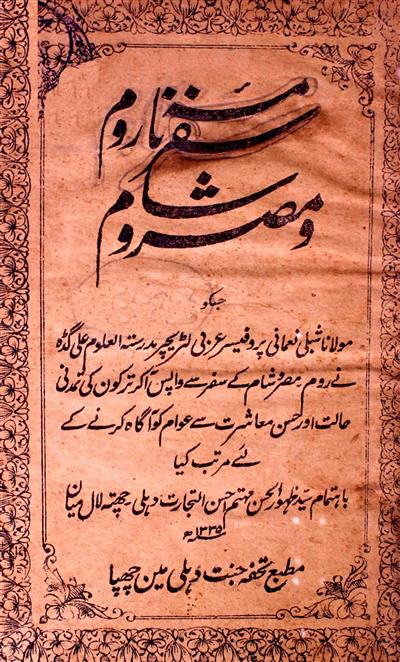 سفرنامہ روم
و مصر و شام
جسکو
مولانا شبلی نعمانی پروفیسر عربی لٹریچر مدرستہ العلوم علی گڈہ
نے روم و مصر و شام کے سفر سے واپس آکر ترکون کی تمدنی
حالت اور حسن معاشرت سے عوام کو آگاہ کرنے کے
لئے مرتب کیا
باہتمام سید ظہور الحسن مہتمم احسن التجارت دہلی چھتہ لال میان
۱۳۳۵ھ
مطبع تحفہ جنت دہلی مین چھپا